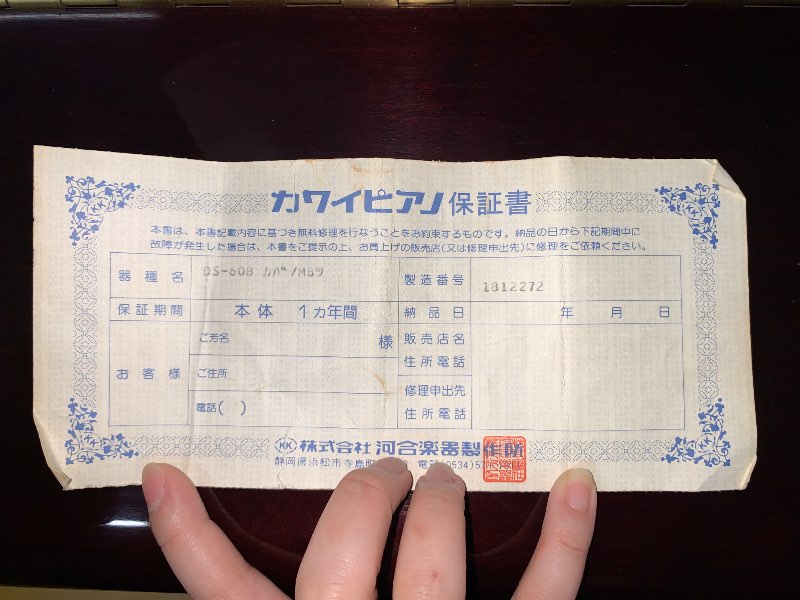 カワイピアノ 保証書
本書は、本書記載内容に基づき無料修理を行なうことをお約束するものです。納品の日から下記期間中に
故障が発生した場合は、本書をご提示の上、お買上げの販売店(又は修理申出先)に修理をご依頼ください。
器種名 DS-60B 製造番号 1812272
保証期間 本体 1ヵ年間 納品日 年 月 日
お客様 ご芳名 様 販売店名
住所電話
ご住所
修理申出先
電話( ) 住所電話
KK 株式会社 河合楽器製作所
静岡県浜松市寺島町 電話(0534)